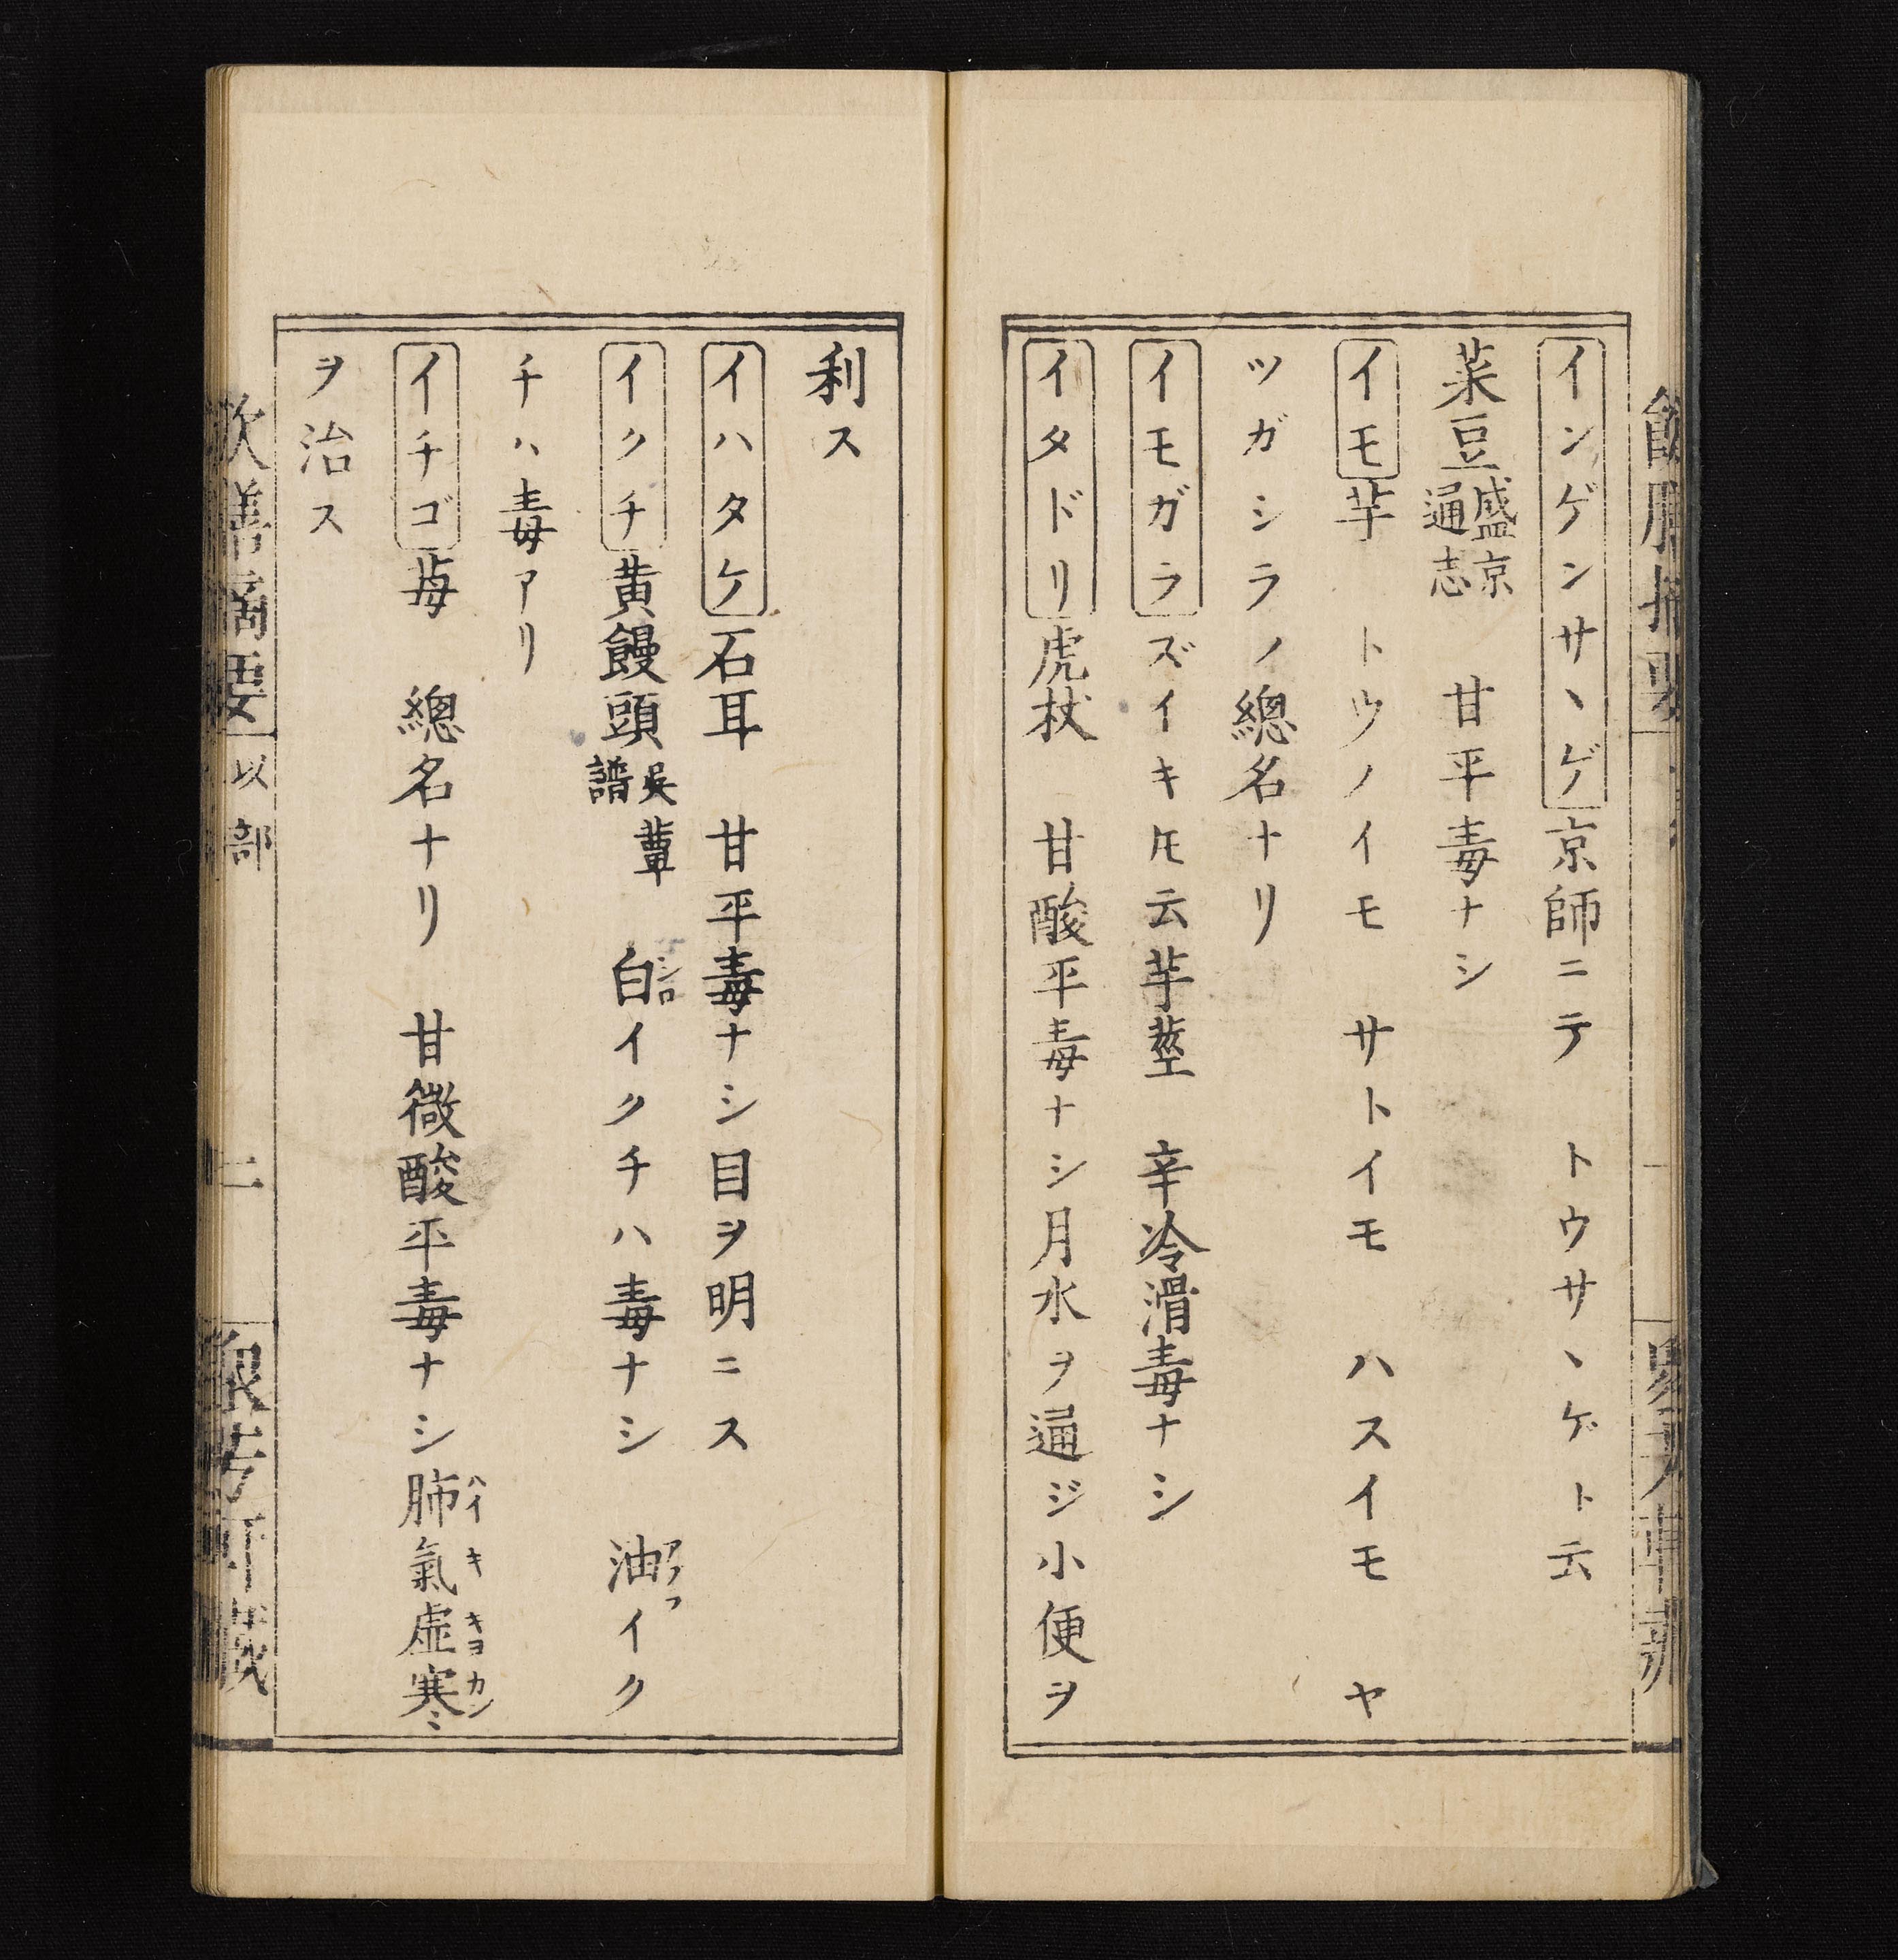 インゲンサヽゲ京師ニテ　トウサヽゲト云
菜豆盛京通志　甘平毒ナシ
イモ芋　トウノイモ　サトイモ　ハスイモ　ヤ
ツガシラノ總名ナリ
イモガラズイキㇳモ云芋莖　辛冷滑毒ナシ
イタドリ虎杖　甘酸平毒ナシ月水ヲ通ジ小便ヲ
利ス
イハタケ石耳　甘平毒ナシ目ヲ明ニス
イクチ黄饅頭呉蕈譜　白イクチハ毒ナシ　油イク
チハ毒アリ
イチゴ苺　總名ナリ　甘微酸平毒ナシ肺氣虚寒
ハイキキヨカン
ヲ治ス
以部
二